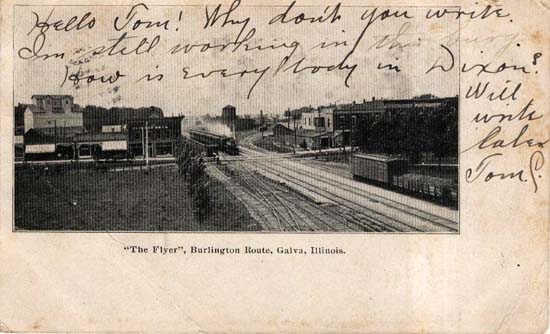 Hello Tom! Why don't you write.
I'm still working in this burg
How is everybody in Dixon?
Will
write
later
Tom C.
"The Flyer", Burlington Route, Galva, Illinois.